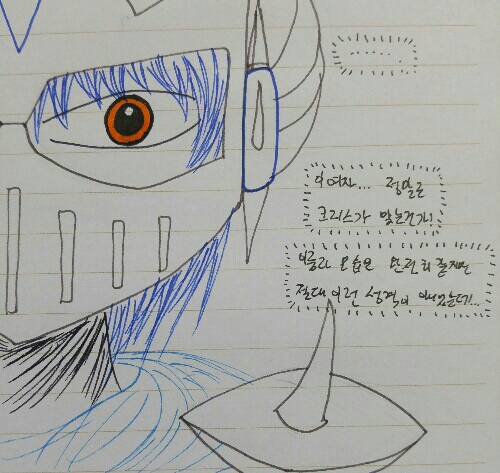 ......
이 여자... 정말로
크리스가 맞는건가!
이름과 모습은 완전히 똑같지만
절대 이런 성격이 아니었는데!...